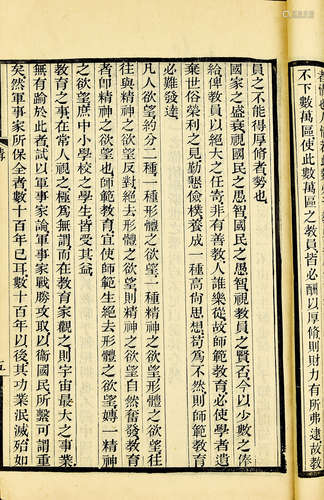 不下數萬區使此數萬區之教員皆必酬以厚脩則財力有所弗逮故教
員之不能得厚脩者勢也
國家之盛衰視國民之愚智國民之愚智視教員之賢否今以少數之俸
給俾教員以絕大之任苟非有善教人誰樂從故師範教育必使學者遺
棄世俗榮利之見勤懇儉樸養成一種高尚思想苟爲不然則師範教育
必難發達
凡人之欲望約分二種一種形體之欲望一種精神之欲望形體之欲望
往往與精神之欲望反對絕去形體之欲望則精神之欲望自然奮發教育
者師精神之欲望也師範教育宜使師範生絕去形體之欲望嫥一精神
之欲望庶中小學校之學生皆受其益
教育之事在常人視之極爲無謂而在教育家觀之則宇宙最大之事業
無有踰於此者試以軍事家論軍事家戰勝攻取以衞國民所繫可謂重
矣然軍事家所保全者數十百年已耳數十百年以後其功業泯滅殆如
五